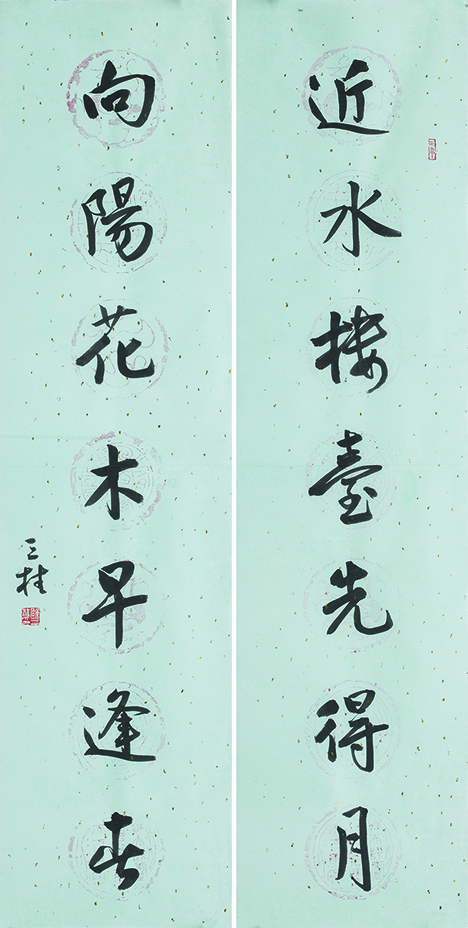 近水楼臺先得月
向陽花木早逢春
三桂